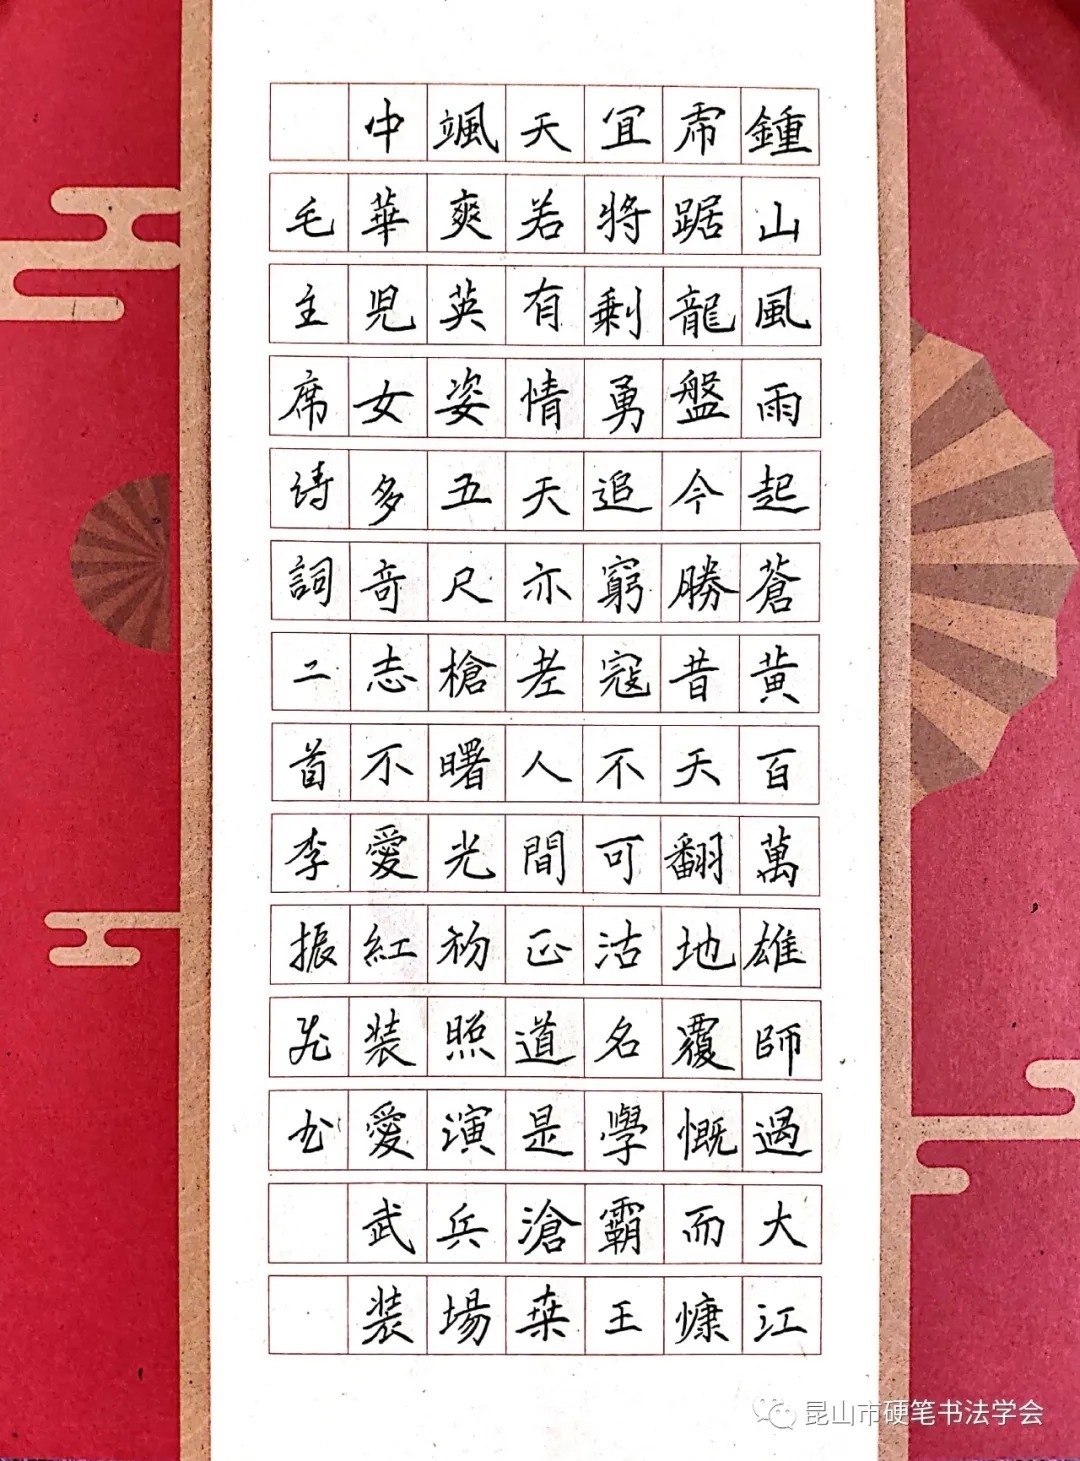 鍾山風雨起蒼黃百萬雄師過大江
虎踞龍盤今勝昔天翻地覆慨而慷
宜將剩勇追窮寇不可沽名學霸王
天若有情天亦老人間正道是滄桒
颯爽英姿五尺槍曙光初照演兵場
中華兒女多奇志不愛紅装愛武装
毛主席诗詞二首李振书
昆山市硬笔书法学会